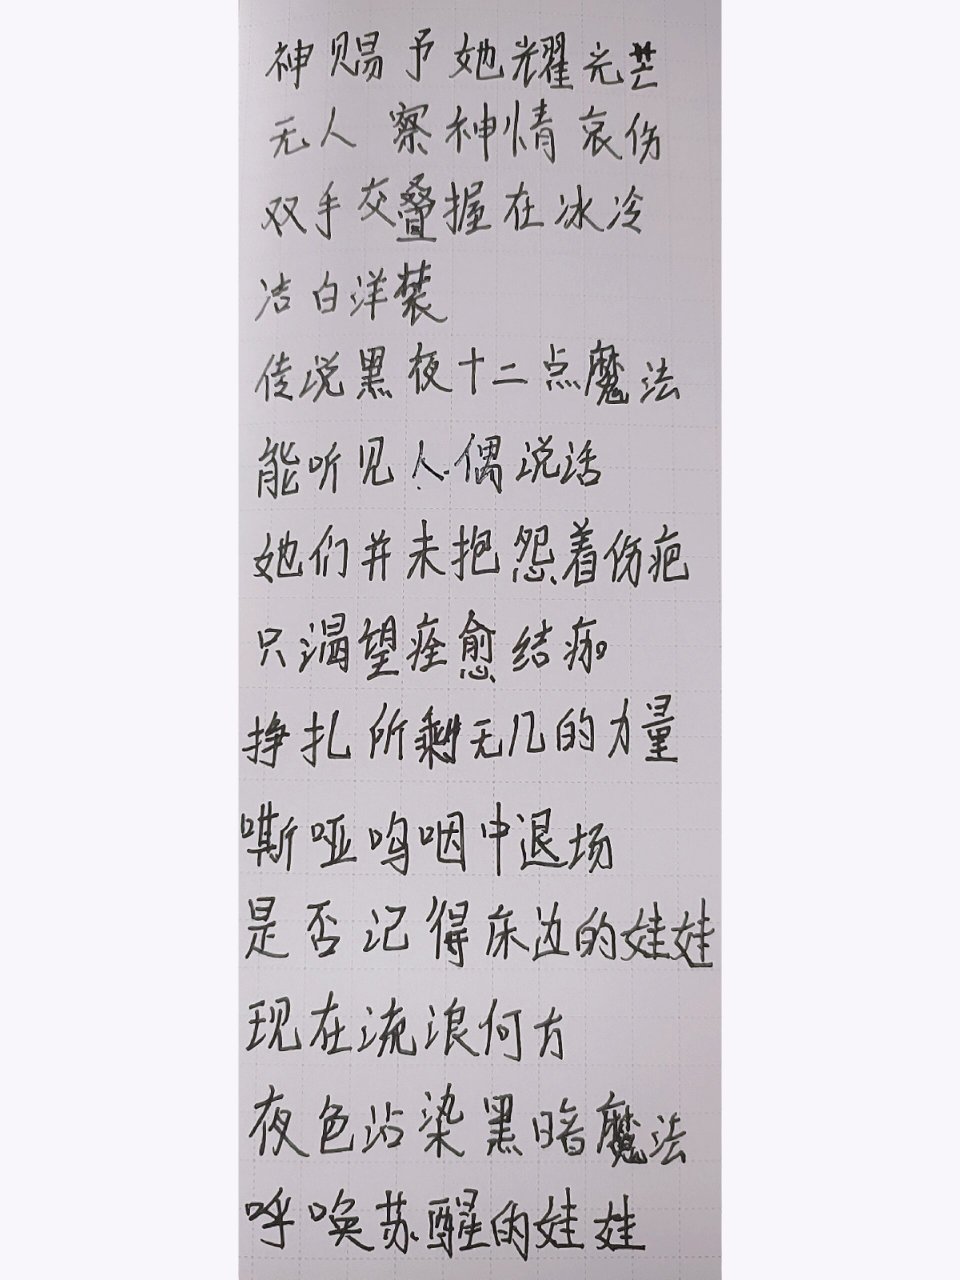 神赐予她耀光芒
无人察神情哀伤
双手交叠握在冰冷
洁白洋装
传说黑夜十二点魔法
能听见人偶说话
她们并未抱怨着伤疤
只渴望痊愈结痂
挣扎所剩无几的力量
嘶哑呜咽中退场
是否记得床边的娃娃
现在流浪何方
夜色沾染黑暗魔法
呼唤苏醒的娃娃